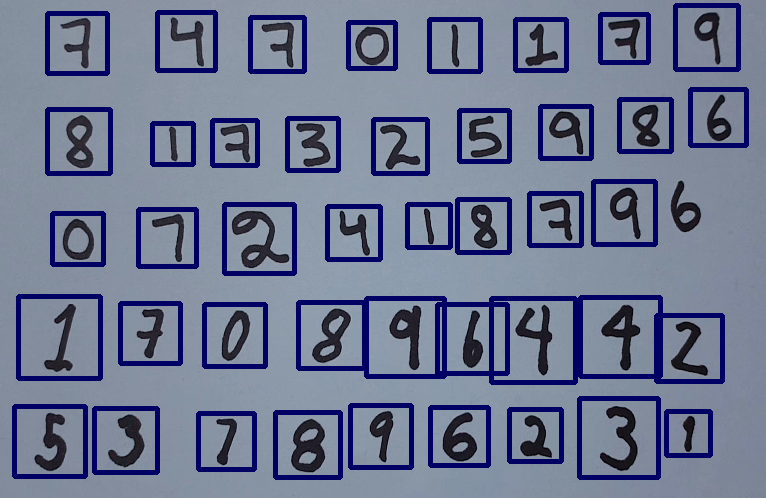 7 4 7 0 1 1 7 9
8 1 7 3 2 5 9 8 6
0 7 2 4 1 8 7 9 6
1 7 0 8 9 6 4 4 2
5 3 7 8 9 6 2 3 1